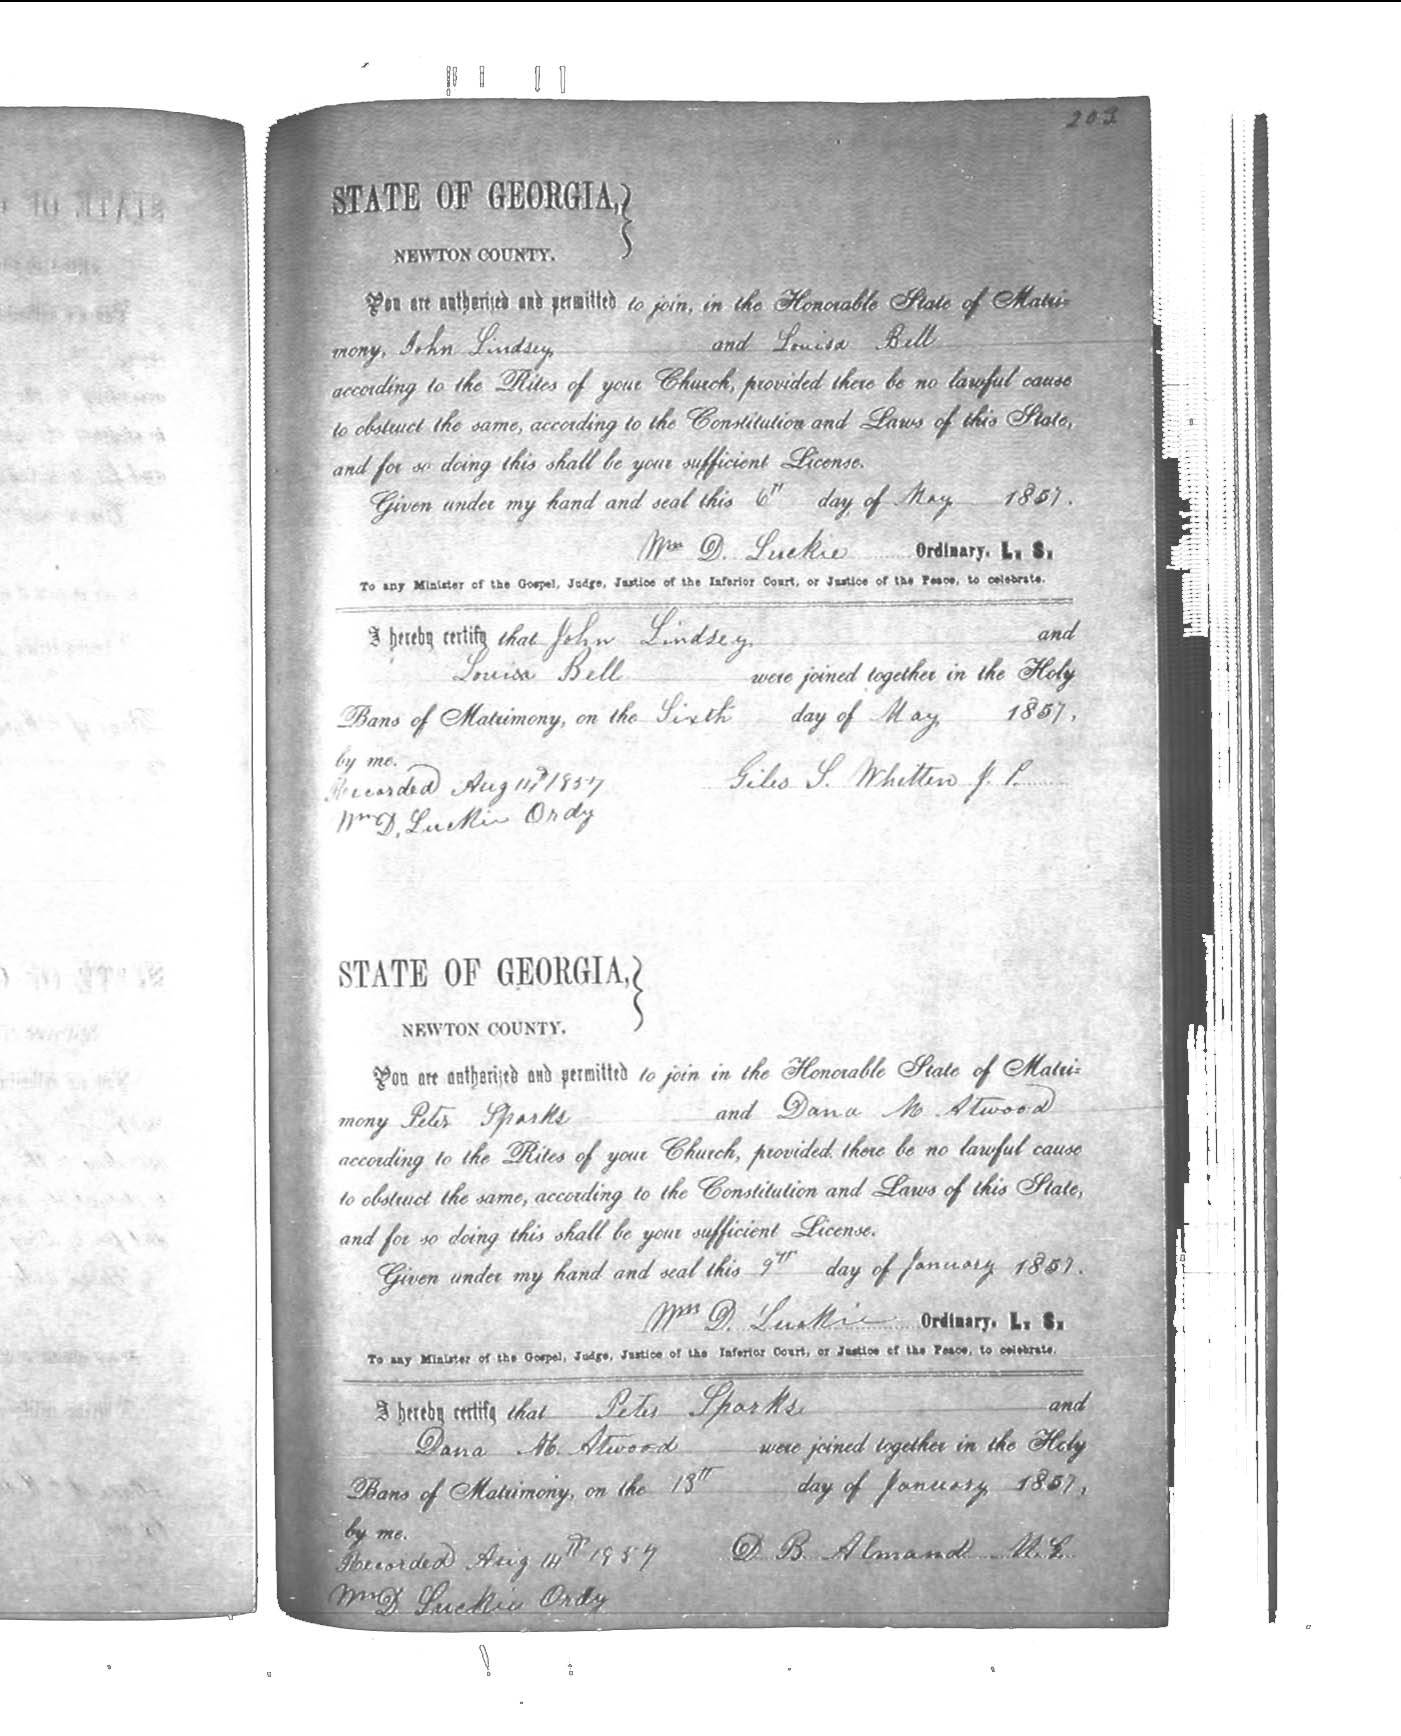 203
STATE OF GEORGIA,
NEWTON COUNTY.
You are authorized and permitted to join, in the Honorable State of Matri=
mony, John Lindsey and Louisa Bell
according to the Rites of your Church, provided there be no lawful cause
to obstruct the same, according to the Constitution and Laws of this State,
and for so doing this shall be your sufficient License.
Given under my hand and seal this 6th day of May 1857.
Wm D. Luckie Ordinary. L. S.
To any Minister of the Gospel, Judge, Justice of the Inferior Court, or Justice of the Peace, to celebrate.
I hereby certify that John Lindsey and
Louisa Bell were joined together in the Holy
Bans of Matrimony, on the Sixth day of May 1857,
by me.
Recorded Aug 14th 1857 Giles S. Whitten J. P.
Wm D. Luckie Ordy
STATE OF GEORGIA,
NEWTON COUNTY.
You are authorized and permitted to join in the Honorable State of Matri=
mony Peter Sparks and Dana M Atwood
according to the Rites of your Church, provided there be no lawful cause
to obstruct the same, according to the Constitution and Laws of this State,
and for so doing this shall be your sufficient License.
Given under my hand and seal this 9th day of January 1857.
Wm D. Luckie Ordinary. L. S.
To any Minister of the Gospel, Judge, Justice of the Inferior Court, or Justice of the Peace, to celebrate.
I hereby certify that Peter Sparks and
Dana M. Atwood were joined together in the Holy
Bans of Matrimony, on the 13th day of January 1857,
by me.
Recorded Aug 14th 1857 D B. Almand
Wm D Luckie Ordy